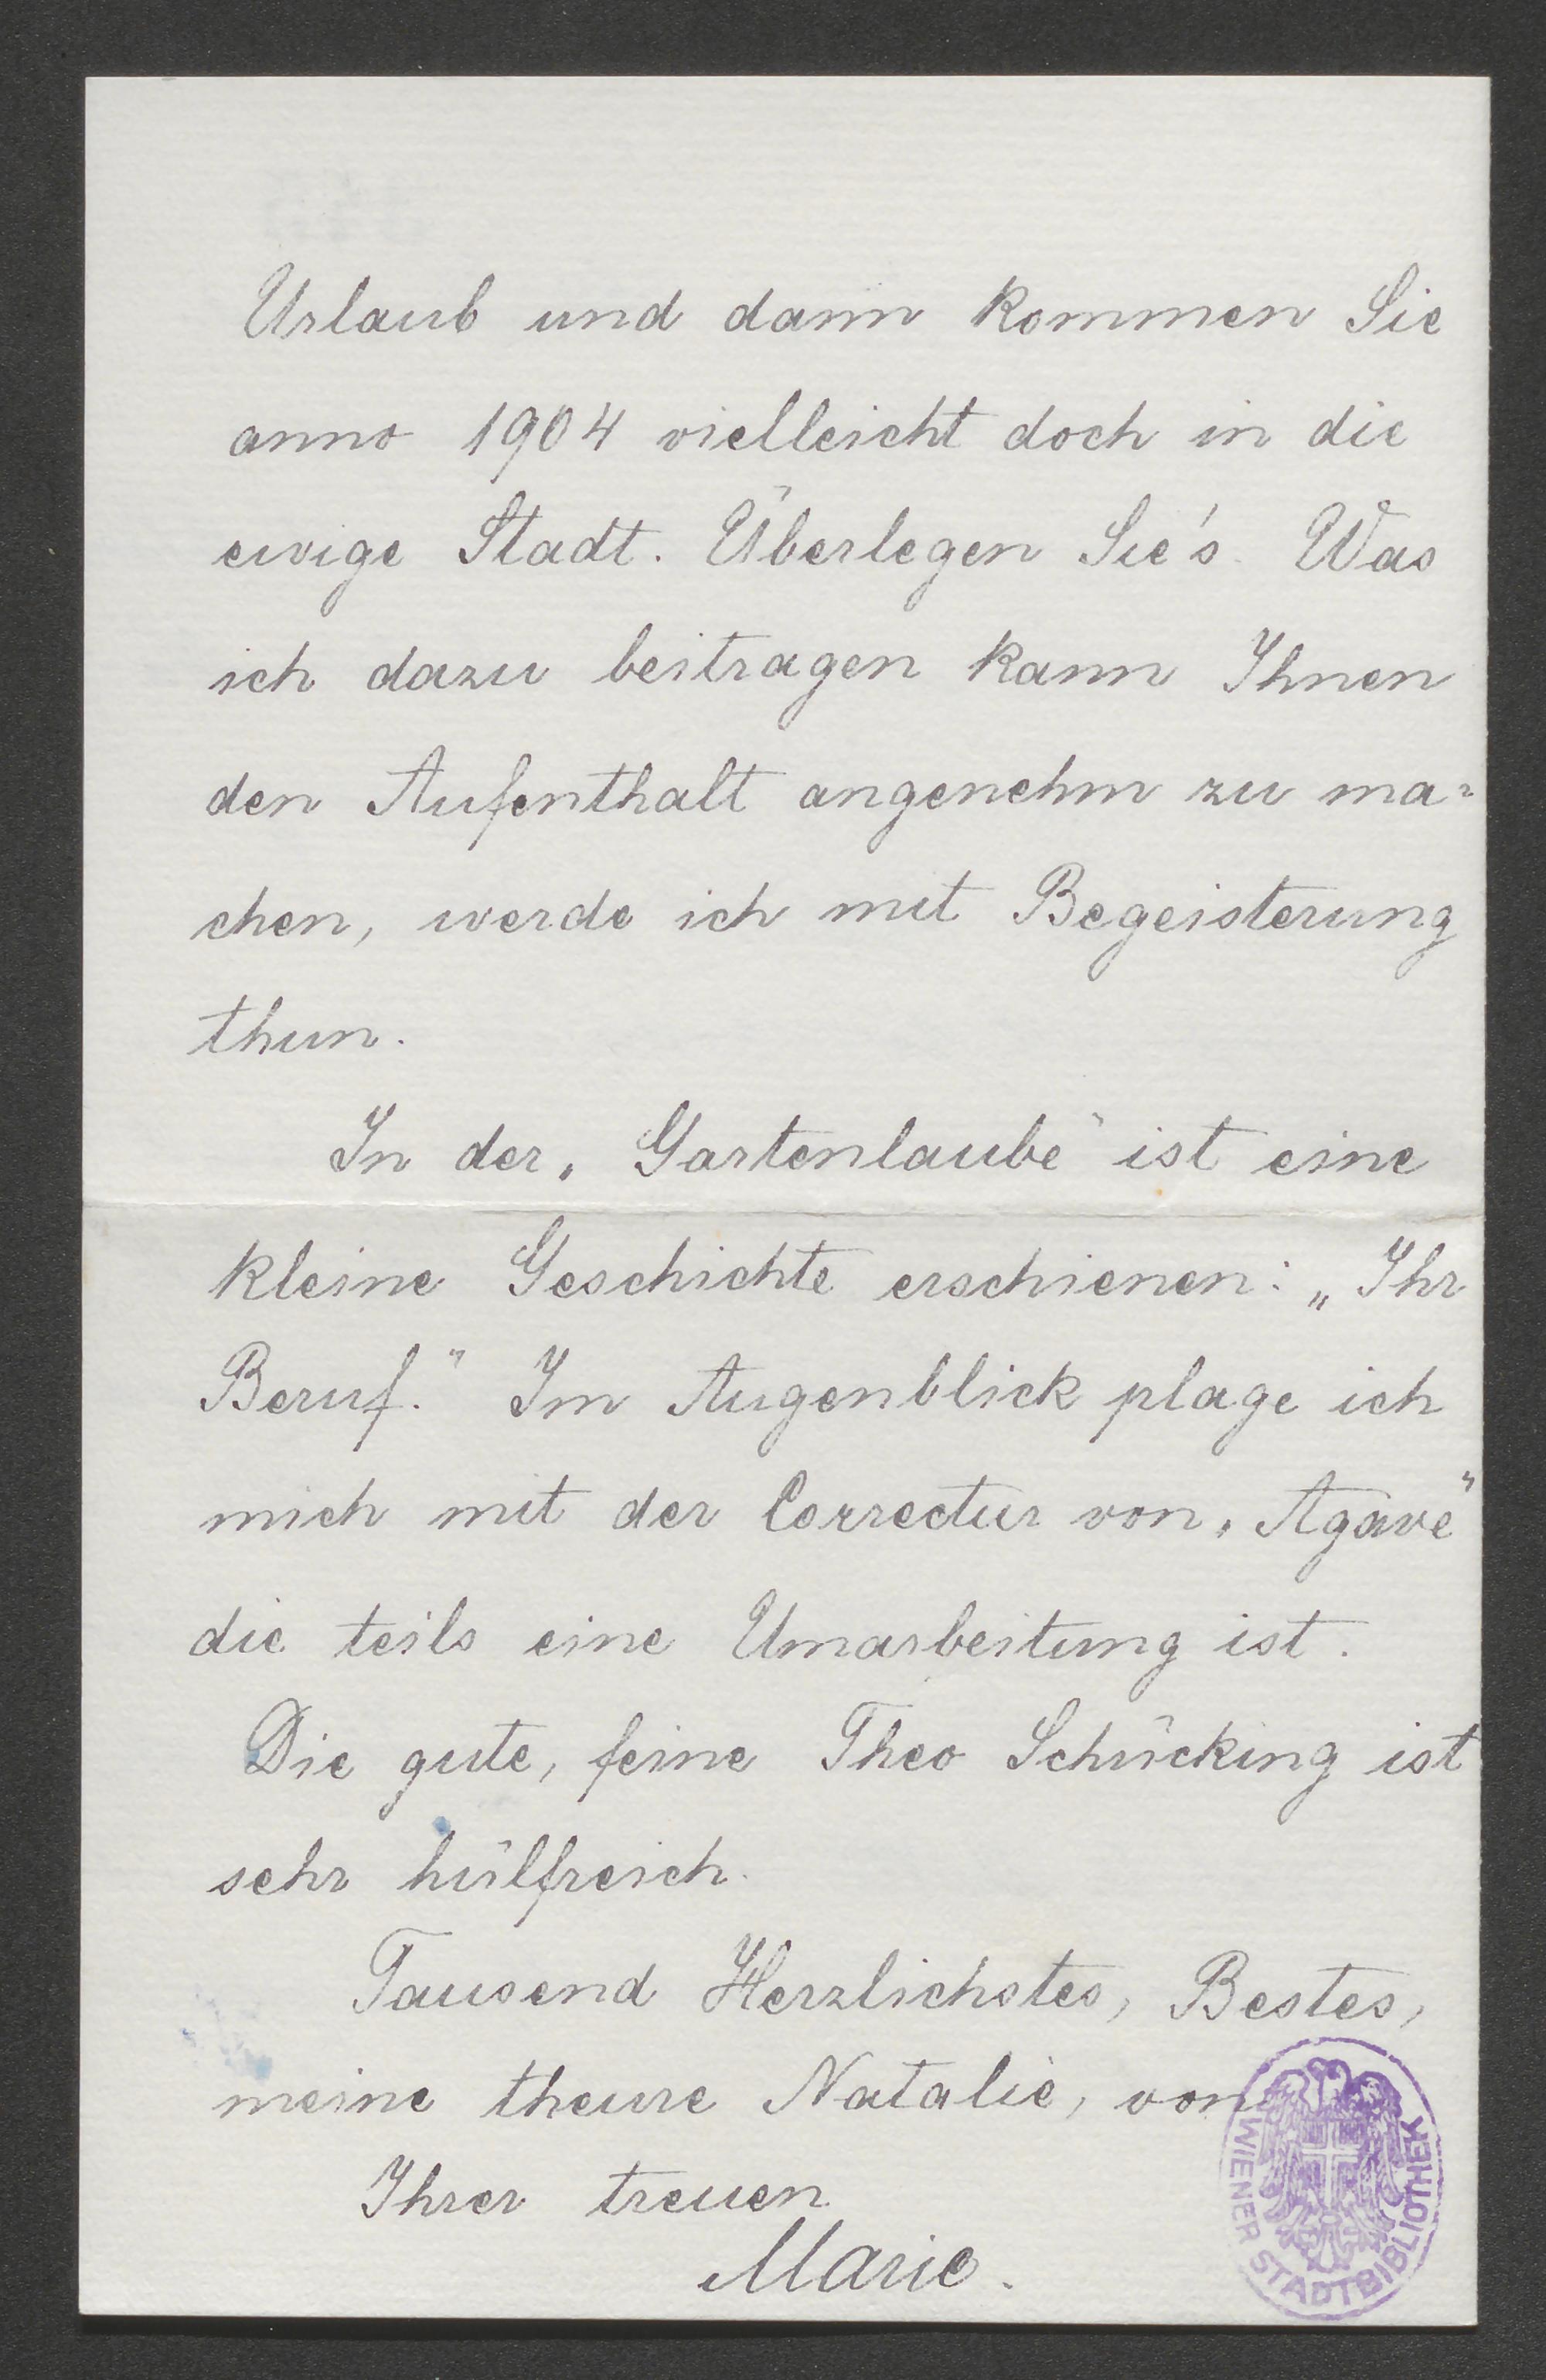 Urlaub und dann kommen Sie
anno 1904 vielleicht doch in die
ewige Stadt. Überlegen Sie's. Was
ich dazu beitragen kann Ihnen
den Aufenthalt angenehm zu ma=
chen, werde ich mit Begeisterung
thun.
In der „Gartenlaube" ist eine
kleine Geschichte erschienen: „Ihr
Beruf." Im Augenblick plage ich
mich mit der Correctur von „Agave"
die teils eine Umarbeitung ist.
Die gute, feine Theo Schücking ist
sehr hülfreich.
Tausend Herzlichstes, Bestes,
meine theure Natalie, von
Ihrer treuen
Marie.
WIENER STADTBIBLIOTHEK